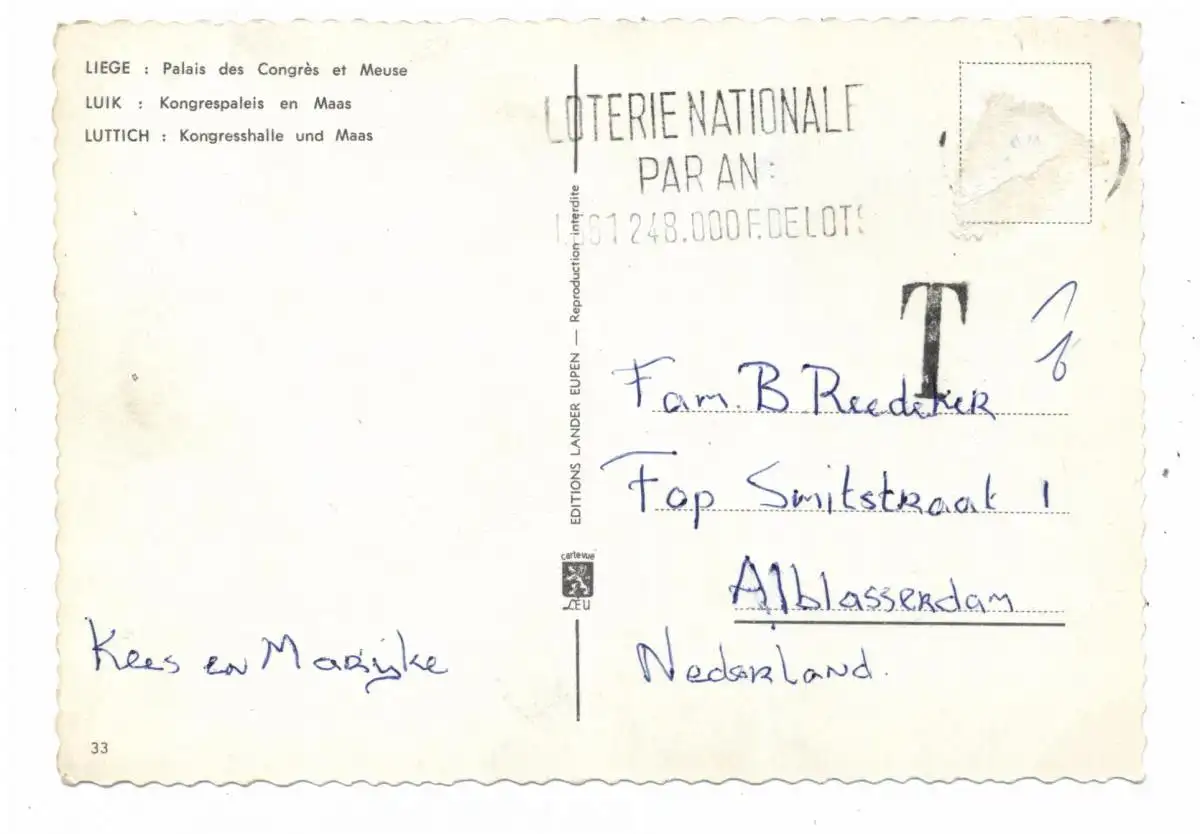 LIEGE : Palais des Congrès et Meuse
LUIK : Kongrespaleis en Maas
LUTTICH : Kongresshalle und Maas
LOTERIE NATIONALE
PAR AN :
248.000 F. DE LOTS
EDITIONS LANDER EUPEN — Reproduction interdite
cartevue
LEU
T
Fam. B Reedeker
Fop Smitstraat 1
Alblasserdam
Nederland.
Kees en Marijke
33